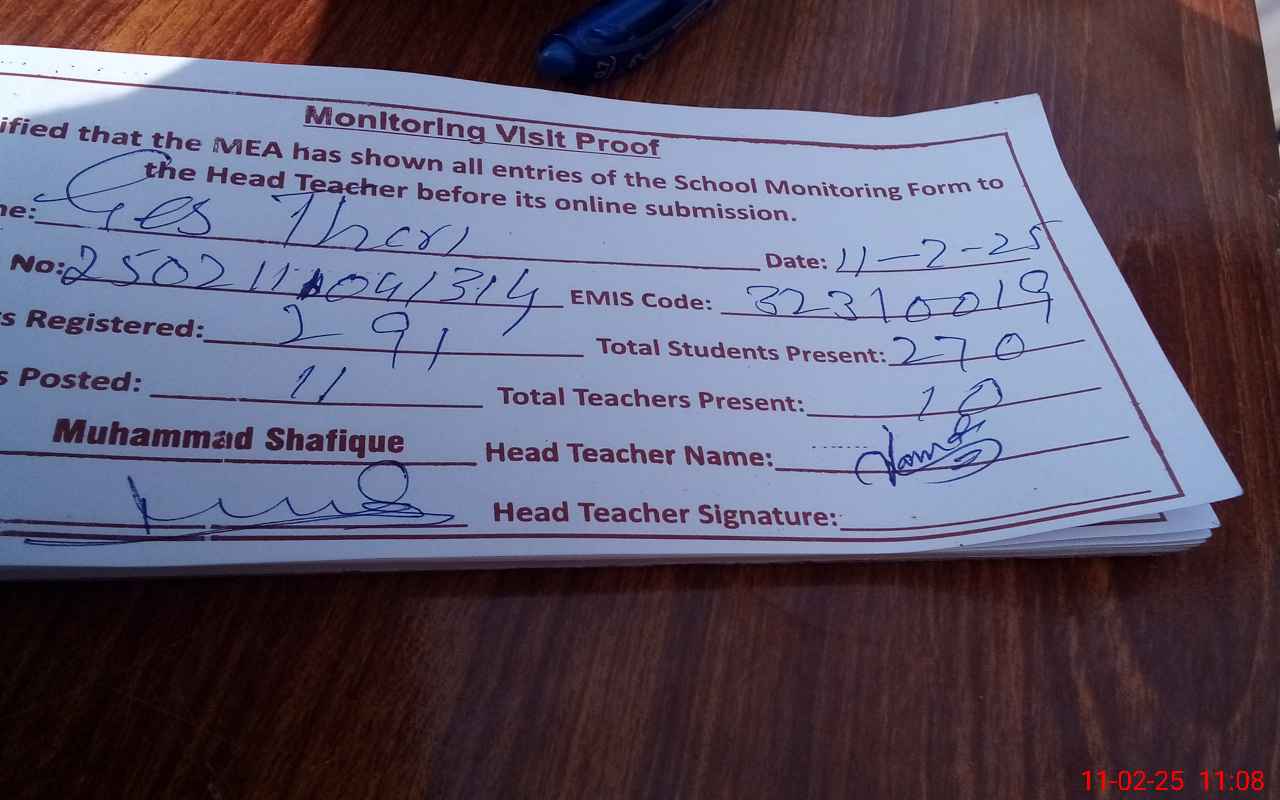 Monitoring Visit Proof
ified that the MEA has shown all entries of the School Monitoring Form to
the Head Teacher before its online submission.
ne: Ges Theri Date: 11-2-25
No: 2502111041314 EMIS Code: 32310019
s Registered: 291 Total Students Present: 270
s Posted: 11 Total Teachers Present: 10
Muhammad Shafique Head Teacher Name:
Head Teacher Signature:
11-02-25 11:08